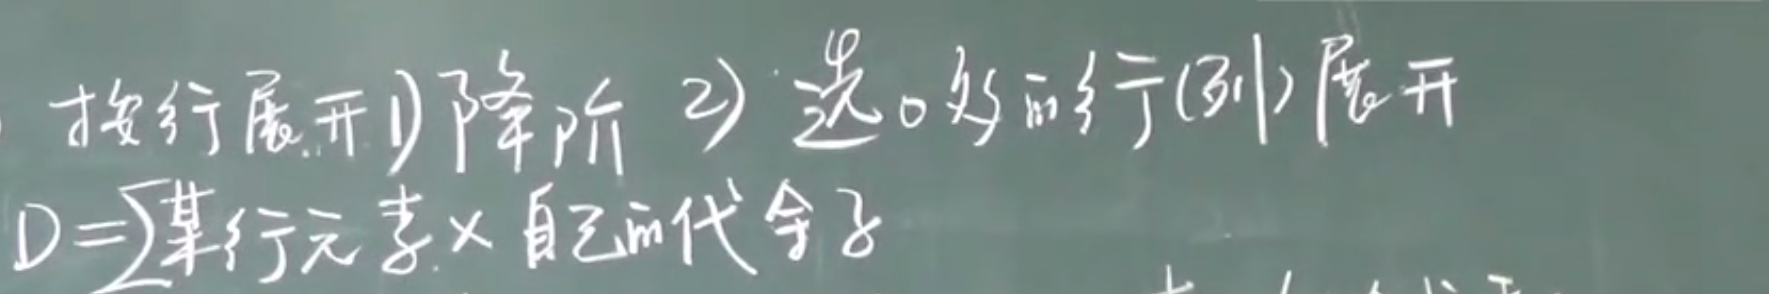 按行展开 1) 降阶 2) 选0多的行(列)展开
D=∑某行元素×自己的代余子